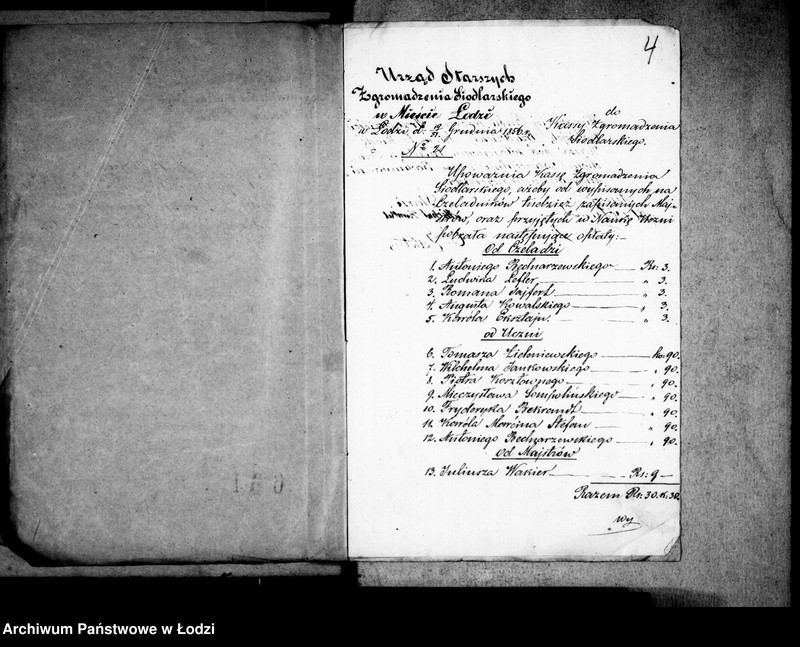 4
Urząd Starszych
Zgromadzenia Siodlarskiego
w Mieście Łodzi
w Łodzi d. Grudnia 1856 r.
№ 21
do
Kassy Zgromadzenia
Siodlarskiego.
Upoważnia Kassę Zgromadzenia
Siodlarskiego, ażeby od wypisanych na
Czeladników tudzież zapisanych Maj-
strów, oraz przyjętych w Naukę Uczni
pobrała następujące opłaty:
Od Czeladzi
1. Antoniego Bednarzewskiego — Rs: 3.
2. Ludwika Lefler — „ 3.
3. Romana Sajfert — „ 3.
4. Augusta Kowalskiego — „ 3.
5. Karóla — „ 3.
od Uczni
6. Tomasza Zieleniewskiego — ko: 90.
7. Wilhelma Jankowskiego — „ 90.
8. Piotra — „ 90.
9. Mieczysława Sompolińskiego — „ 90.
10. Fryderyka — „ 90.
11. Karóla Marcina Stefan — „ 90.
12. Antoniego Bednarzewskiego — „ 90.
od Majstrów
13. Juliusza Wakier — Rs: 9 —
Razem Rs: 30. k. 30.
Archiwum Państwowe w Łodzi